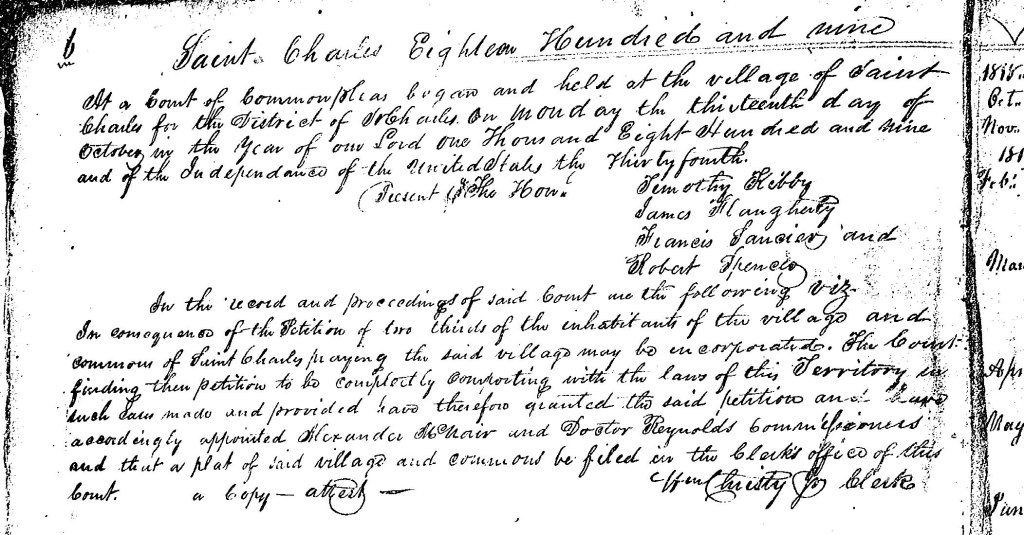 6
Saint Charles Eighteen Hundred and nine
At a Court of Commonpleas began and held at the village of Saint
Charles for the District of St Charles. On Monday the thirteenth day of
October in the Year of our Lord one Thousand Eight Hundred and nine
and of the Independance of the United States the Thirty fourth.
Present The Hon.
Timothy Kibby
James Flaugherty
Francis Saucier and
Robert Spencer
In the record and proceedings of said Court are the following viz
In consequence of the Petition of two thirds of the inhabitants of the village and
commons of Saint Charles praying the said village may be incorporated. The Court
finding then petition to be compleatly comporting with the laws of this Territory in
such case made and provided have therefore granted the said petition and have
accordingly appointed Alexander McNair and Doctor Reynolds Commissioners
and that a plat of said village and commons be filed in the Clerks office of this
Court. a Copy — attest —
Wm Christy Jr Clerk
Oct.
Nov.
181
Feb:
Mar
Apr
May